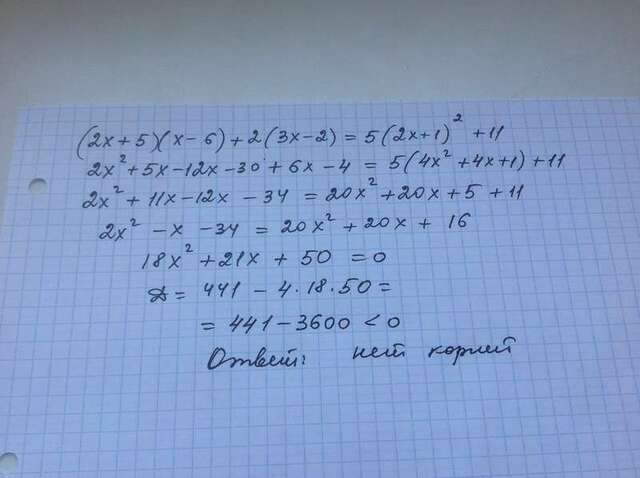 (2x+5)(x-6)+2(3x-2)=5(2x+1)²+11
2x²+5x-12x-30+6x-4=5(4x²+4x+1)+11
2x²+11x-12x-34=20x²+20x+5+11
2x²-x-34=20x²+20x+16
18x²+21x+50=0
D=441-4·18·50=
=441-3600<0
Ответ: нет корней